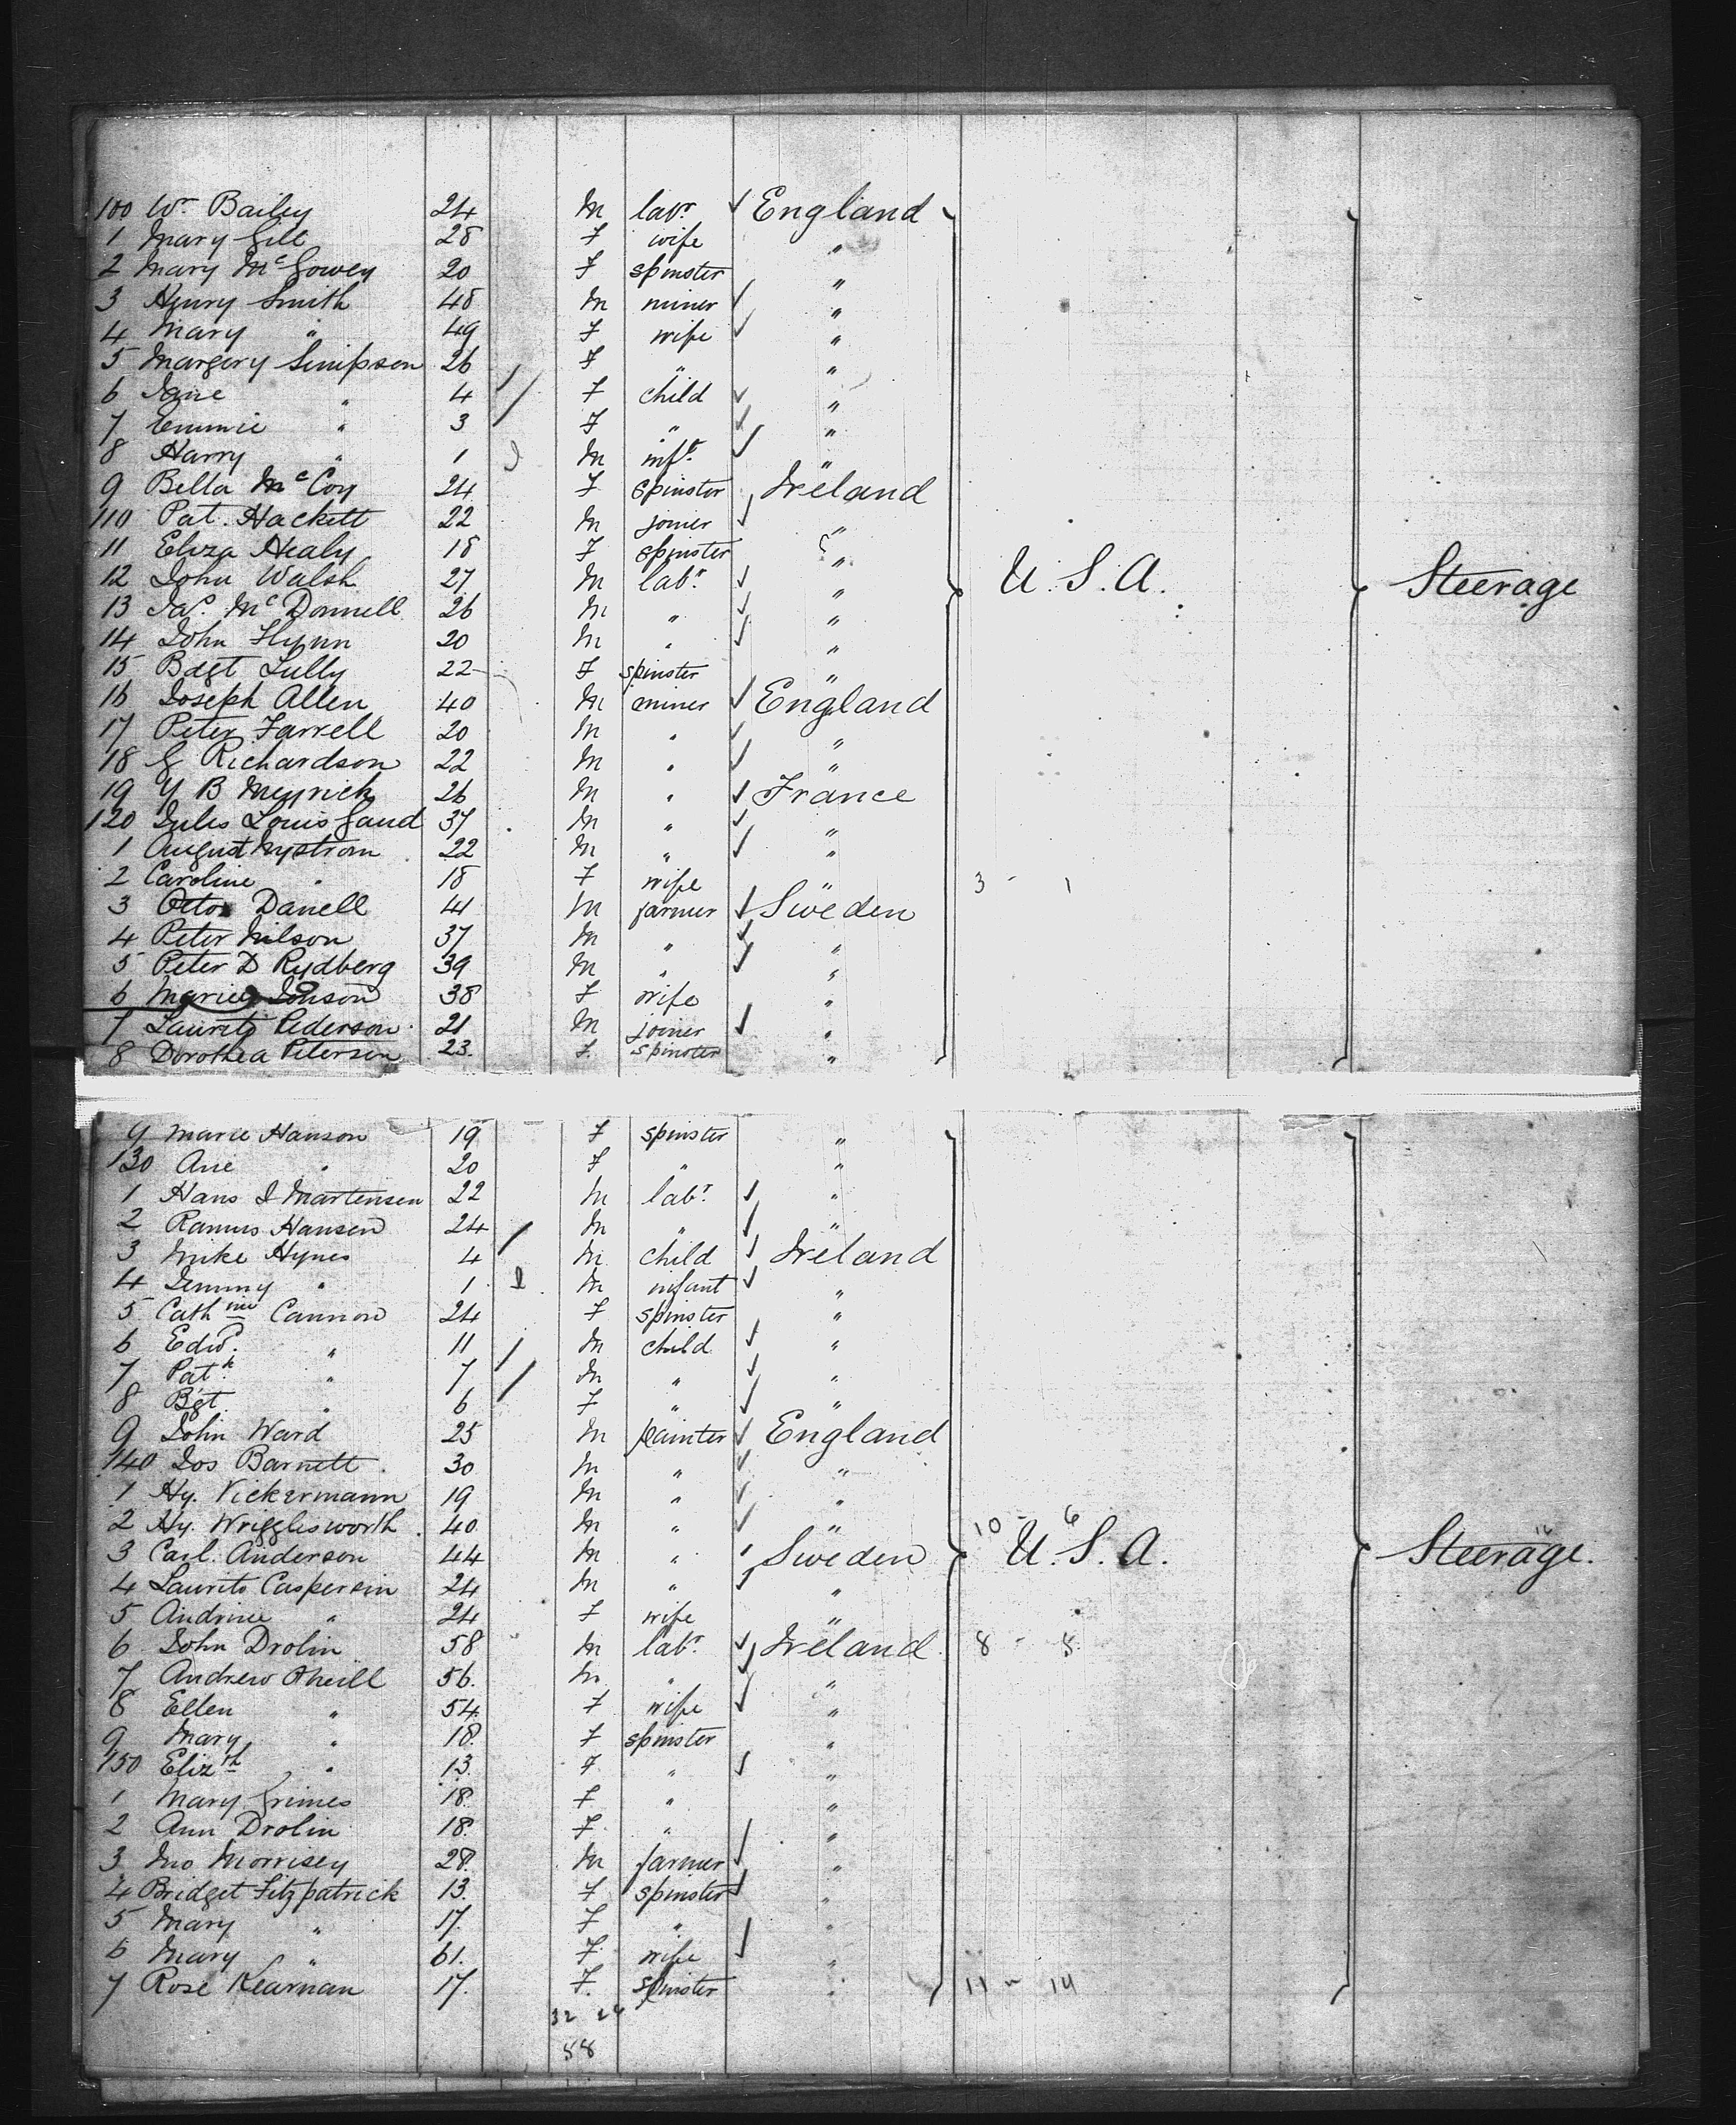 100 Wm Bailey 24 M labr ✓ England
1 Mary Gill 28 F wife "
2 Mary McGowey 20 F spinster "
3 Henry Smith 48 M miner ✓ "
4 Mary " 49 F wife ✓ "
5 Margery Simpson 26 F " "
6 Jane " 4 / F child ✓ "
7 Emmie " 3 / F " ✓ "
8 Harry " 1 M inft ✓ "
9 Bella McCoy 24 F spinster Ireland
110 Pat. Hackett 22 M joiner ✓ "
11 Eliza Healy 18 F spinster "
12 John Walsh 27 M labr ✓ " U.S.A. Steerage
13 Jas. McDonnell 26 M " ✓ "
14 John Flynn 20 M " ✓ "
15 Bdgt Lully 22 F spinster "
16 Joseph Allen 40 M miner ✓ England
17 Peter Farrell 20 M " ✓ "
18 G Richardson 22 M " ✓ "
19 Y B Meyrick 26 M " ✓ France
120 Jules Louis Gaud 37 M " ✓ "
1 August Nystrom 22 M " ✓ "
2 Caroline " 18 F wife " 3 - 1
3 Otto Danell 41 M farmer ✓ Sweden
4 Peter Nilson 37 M " ✓ "
5 Peter D Rydberg 39 M " ✓ "
6 Marie Jonson 38 F wife "
7 Laurits Pederson 21 M joiner ✓ "
8 Dorothea Peterson 23. F. spinster "
9 Marie Hanson 19 F spinster "
130 Ane " 20 F " "
1 Hans J Martensen 22 M labr. ✓ "
2 Ramus Hansen 24 M " ✓ "
3 Mike Hynes 4 / M child ✓ Ireland
4 Jemmy " 1 M infant ✓ "
5 Cathine Cannon 24 F spinster "
6 Edwd. " 11 / M child ✓ "
7 Patk " 7 / M " ✓ "
8 Bgt. " 6 F " ✓ "
9 John Ward 25 M painter ✓ England
140 Jos Barnett 30 M " ✓ "
1 Hy. Vickermann 19 M " ✓ "
2 Hy. Wrigglesworth 40 M " ✓ " 10 - 6
3 Carl. Anderson 44 M " Sweden U.S.A. Steerage.
4 Laurits Caspersin 24 M " ✓ "
5 Andrine " 24 F wife "
6 John Drolin 58 M labr. ✓ Ireland 8 - 5
7 Andrew O'neill 56. M " ✓ "
8 Ellen " 54. F wife ✓ "
9 Mary " 18. F spinster "
150 Elizth " 13. F " ✓ "
1 Mary Grimes 18. F " "
2 Ann Drolin 18. F " "
3 Jno Morrisey 28. M farmer ✓ "
4 Bridget Fitzpatrick 13. F spinster ✓ "
5 Mary " 17. F " "
6 Mary " 61. F wife ✓ "
7 Rose Kearnan 17. F. spinster " 11 - 14
32
58